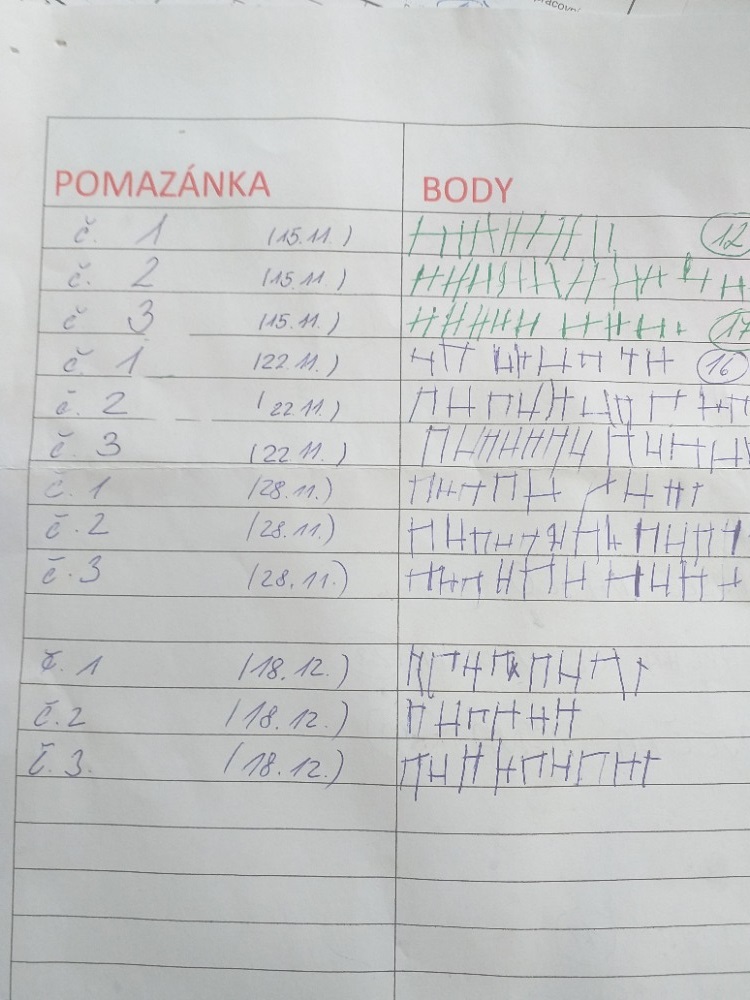 pracovní
POMAZÁNKA BODY
č. 1 (15.11.) 12
č. 2 (15.11.)
č 3 (15.11.) 17
č. 1 (22.11.) 16
č. 2 (22.11.)
č. 3 (22.11.)
č. 1 (28.11.)
č. 2 (28.11.)
č. 3 (28.11.)
č. 1 (18.12.)
č. 2 (18.12.)
č. 3. (18.12.)